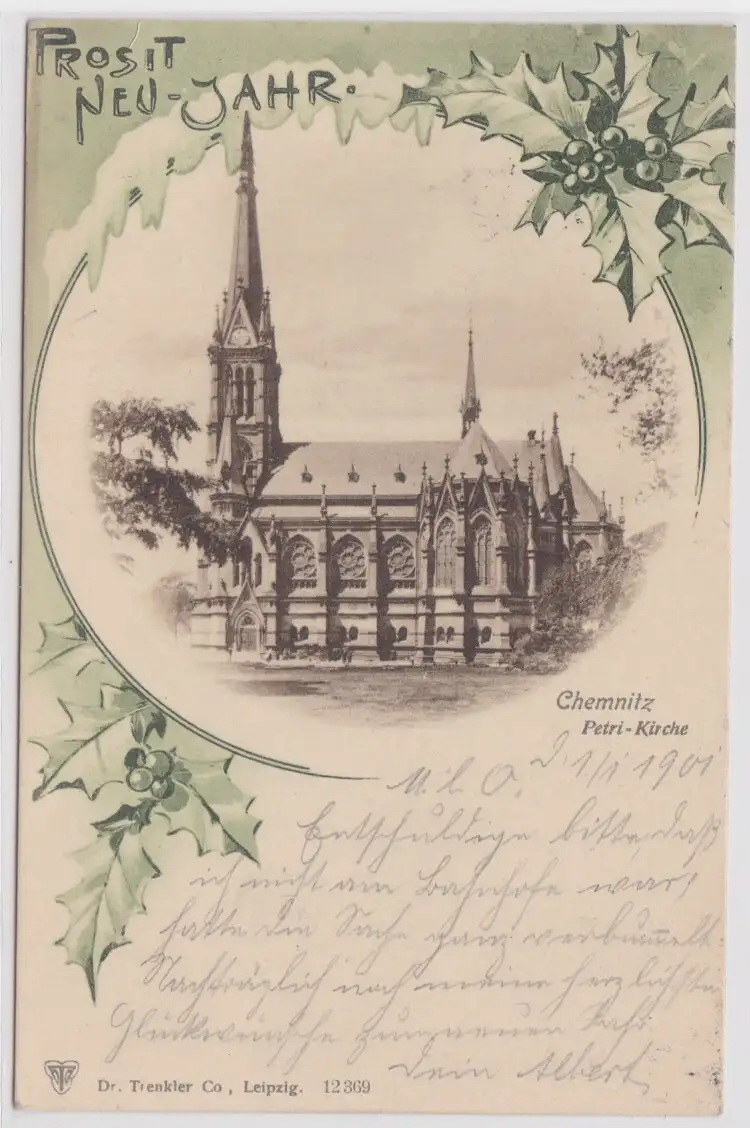 PROSIT
NEU-JAHR.
Chemnitz
Petri-Kirche
M. l. O. d. 1/1 1901
Entschuldige bitte, daß
ich nicht am Bahnhofe war,
hatte die Sache ganz verbummelt.
Nachträglich noch meine herzlichsten
Glückwünsche zum neuen Jahr
Dein Albert
Dr. Trenkler Co., Leipzig. 12369